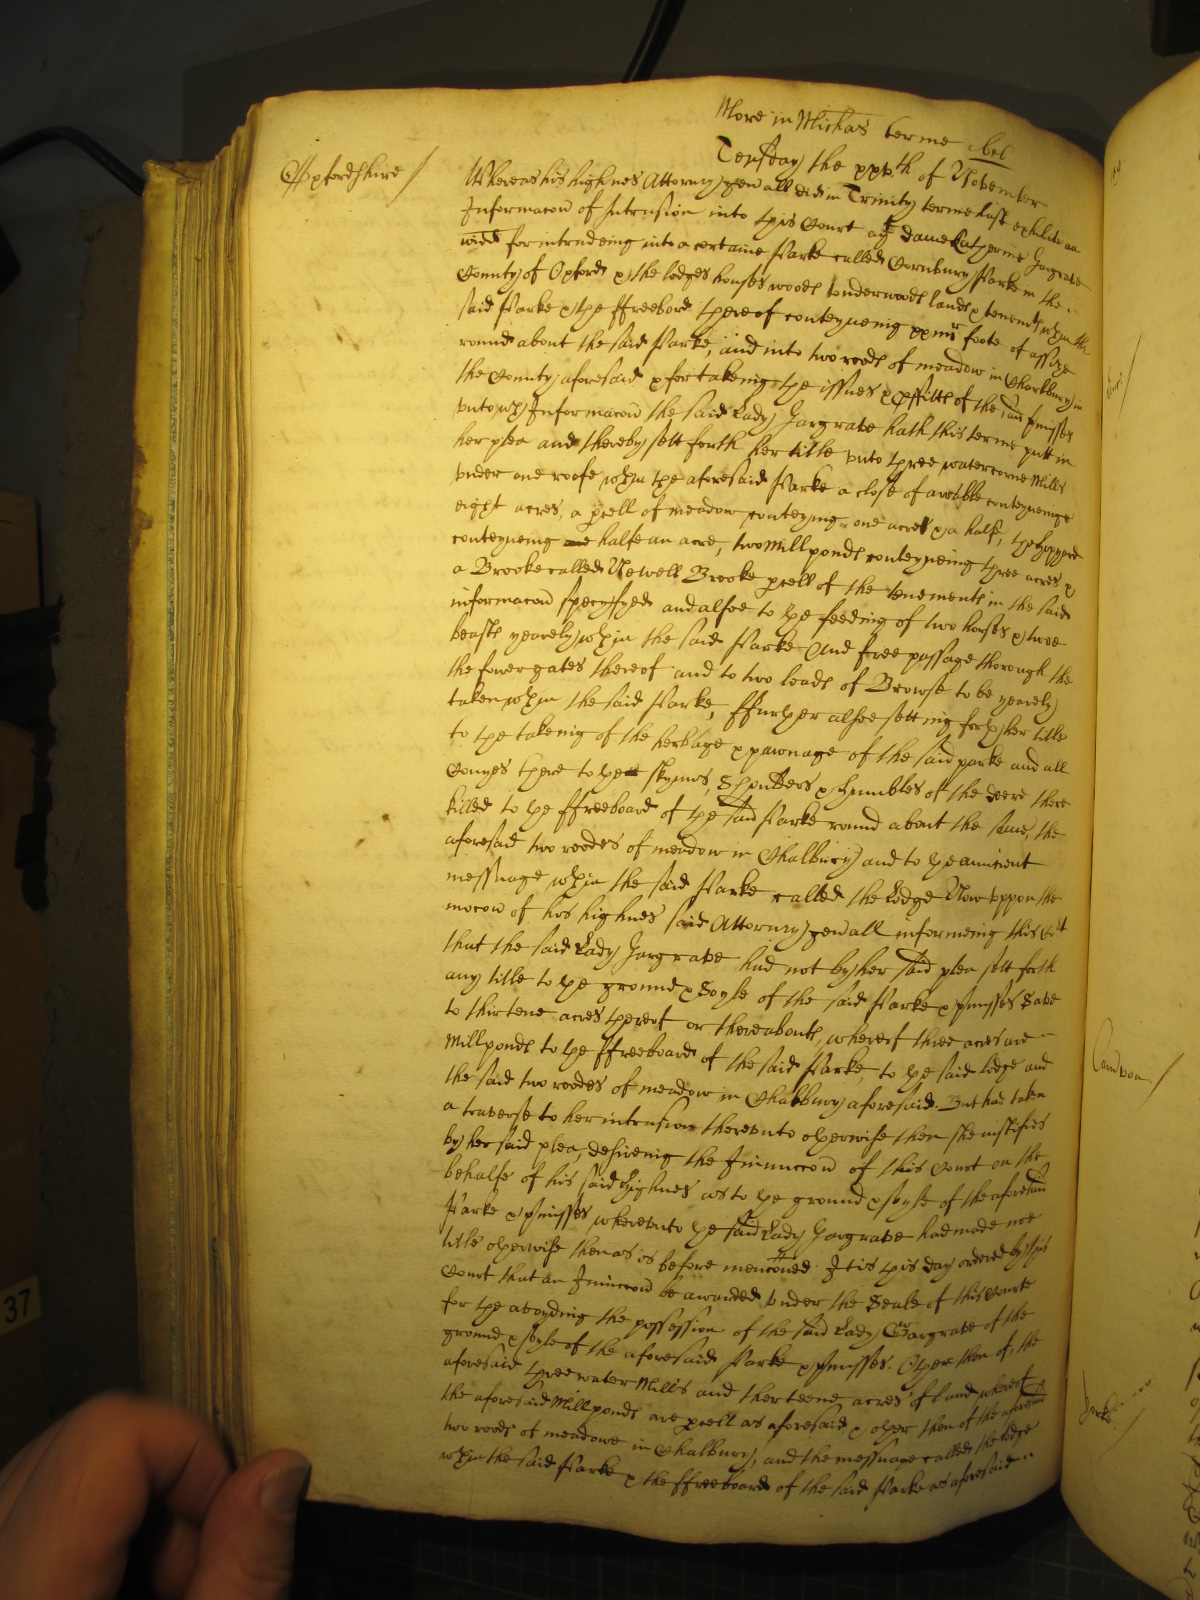 More in Michas terme
Teusday the xxvth of November
Oxfordshire /
Whereas his highnes Attorney gen'all did in Trinity terme last exhibite an
Informacon of Intrusion into this Court agt dame Katherine Gargrave
widd for intrudeing into a certaine Parke called Cornbury Parke in the
County of Oxford & the lodges houses woods underwoods lands & tenemts wthin the
said Parke & the ffreebord thereof conteyneing foote of assize
round about the said Parke, and into two roods of meadow in Charlbury in
the County aforesaid & for takeing the issues & pfitts of the said pmisses
unto wch Informacon the said Lady Gargrave hath this terme putt in
her plea and thereby sett forth her title unto three watercorne Mills
under one roofe wthin the aforesaid Parke a close of arrable conteyneinge
eight acres, a pcell of meadow conteyning one acre & a halfe, the hoppyard
conteyneing halfe an acre, two Mill ponds conteyneing three acres &
a Brooke called Newell Brooke pcell of the tenements in the said
informacon specyfyed and alsoe to the feeding of two horses & twoe
beasts yearely wthin the said Parke And free passage thorough the
the fower gates thereof and to two loads of Browse to be yearely
taken wthin the said Parke, ffurther alsoe setting forth her title
to the takeing of the herbage & pawnage of the said parke and all
Conyes there to the skynns, Shoulders & humbles of the deere there
killed to the ffreeboard of the said Parke round about the same, the
aforesaid two roodes of meadow in Chalbury and to the auncient
messuage wthin the said Parke called the Lodge Now uppon the
mocon of his highnes said Attorney gen'all informeing this Cot
that the said Lady Gargrave had not by her said plea sett forth
any title to the ground & Soyle of the said Parke & pmisses Save
to thirtene acres thereof or thereabouts, whereof three acres are
Mill ponds to the ffreeboard of the said Parke, to the said lodge and
the said two roodes of meadow in Chalbury aforesaid. But had taken
a traverse to her intrusion thereunto otherwise then she iustifies
by her said plea, desireing the Iniunccon of this Court on the
behalfe of his said highnes as to the ground & soyle of the aforesaid
Parke & pmisses whereunto the said Lady Gargrave had made noe
title otherwise then as is before menconed. It is this day ordered by this
Court that an Iniunccon be awarded under the Seale of this Courte
for the avoyding the possession of the said Lady Gargrave of the
ground & soyle of the aforesaid Parke & pmisses. Other then of, the
aforesaid three water Mills and therteene acres of land whereof
the aforesaid Mill ponds are pcell as aforesaid & other then of the aforesaid
two roods of meadowe in Chalbury, and the messuage called the lodge
wthin the said Parke & the ffreeboard of the said Parke as aforesaid
37